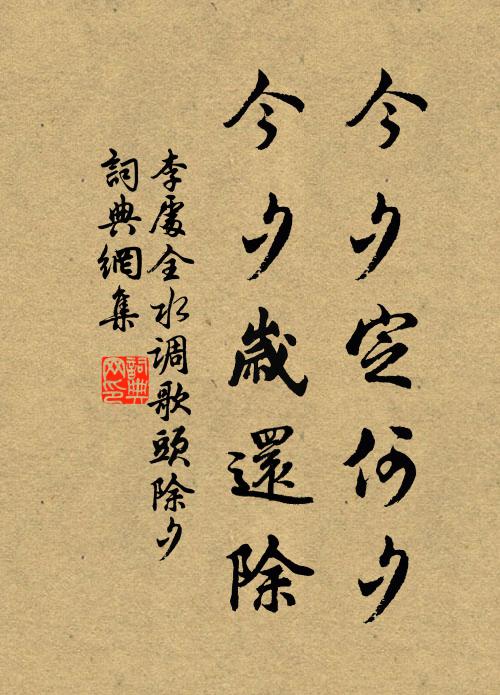 今夕定何夕
今夕歲還除
李處全水调歌頭除夕
詞典網集
詞典
网印